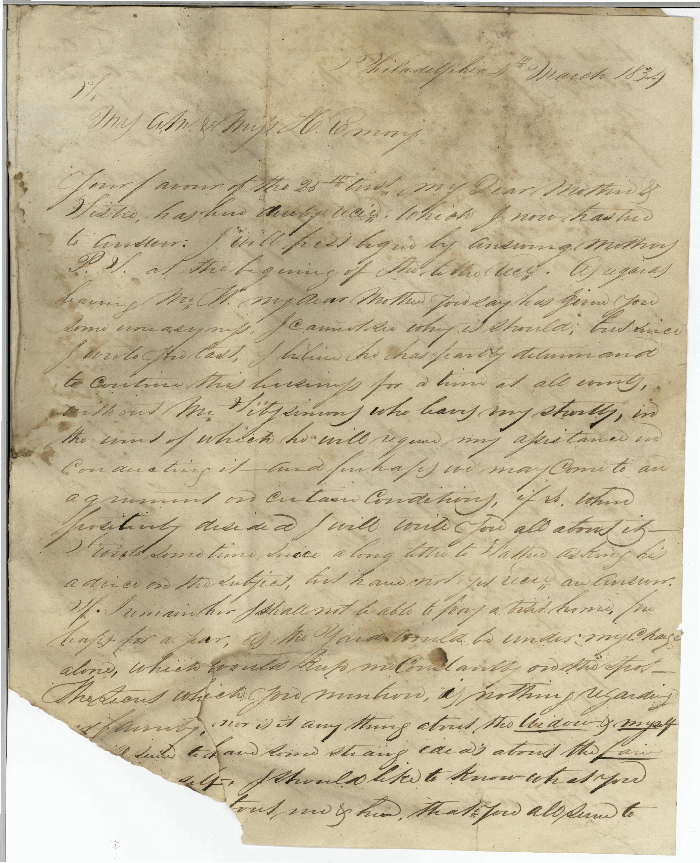 Philadelphia 4th March 1834
Mrs A. M. & Miss H. Emory
Your favour of the 25th Inst, my Dear Mother &
Sister, has been duely recd. which I now hasten
to answer. I will first begin by answering Mothers
P.S. at the begining of the letter recd. As regards
leaving Mr. W. my dear Mother you say has given you
some uneasyness, I cannot see why it should; but since
I wrote you last, I believe he has partly determined
to continue this business for a time at all events,
without Mr Fitzsimons who leaves my shortly, in
the event of which he will require my assistance in
conducting it and perhaps we may come to an
agreement on certain conditions, if so. when
positively decided I will write you all about it
I wrote sometime since a long letter to asking his
advice on the subject, but have not yet recd an answer.
If I remain here I shall not be able to pay a visit home, per
haps for a year, as the Yard would be under my charge
alone, which would keep me constantly on the spot
The which you mention, is nothing regarding
family, nor is it any thing about the Widow & myself
to have some strange ideas about the fair
self, I should like to know what you
about me & her, that you all seem to